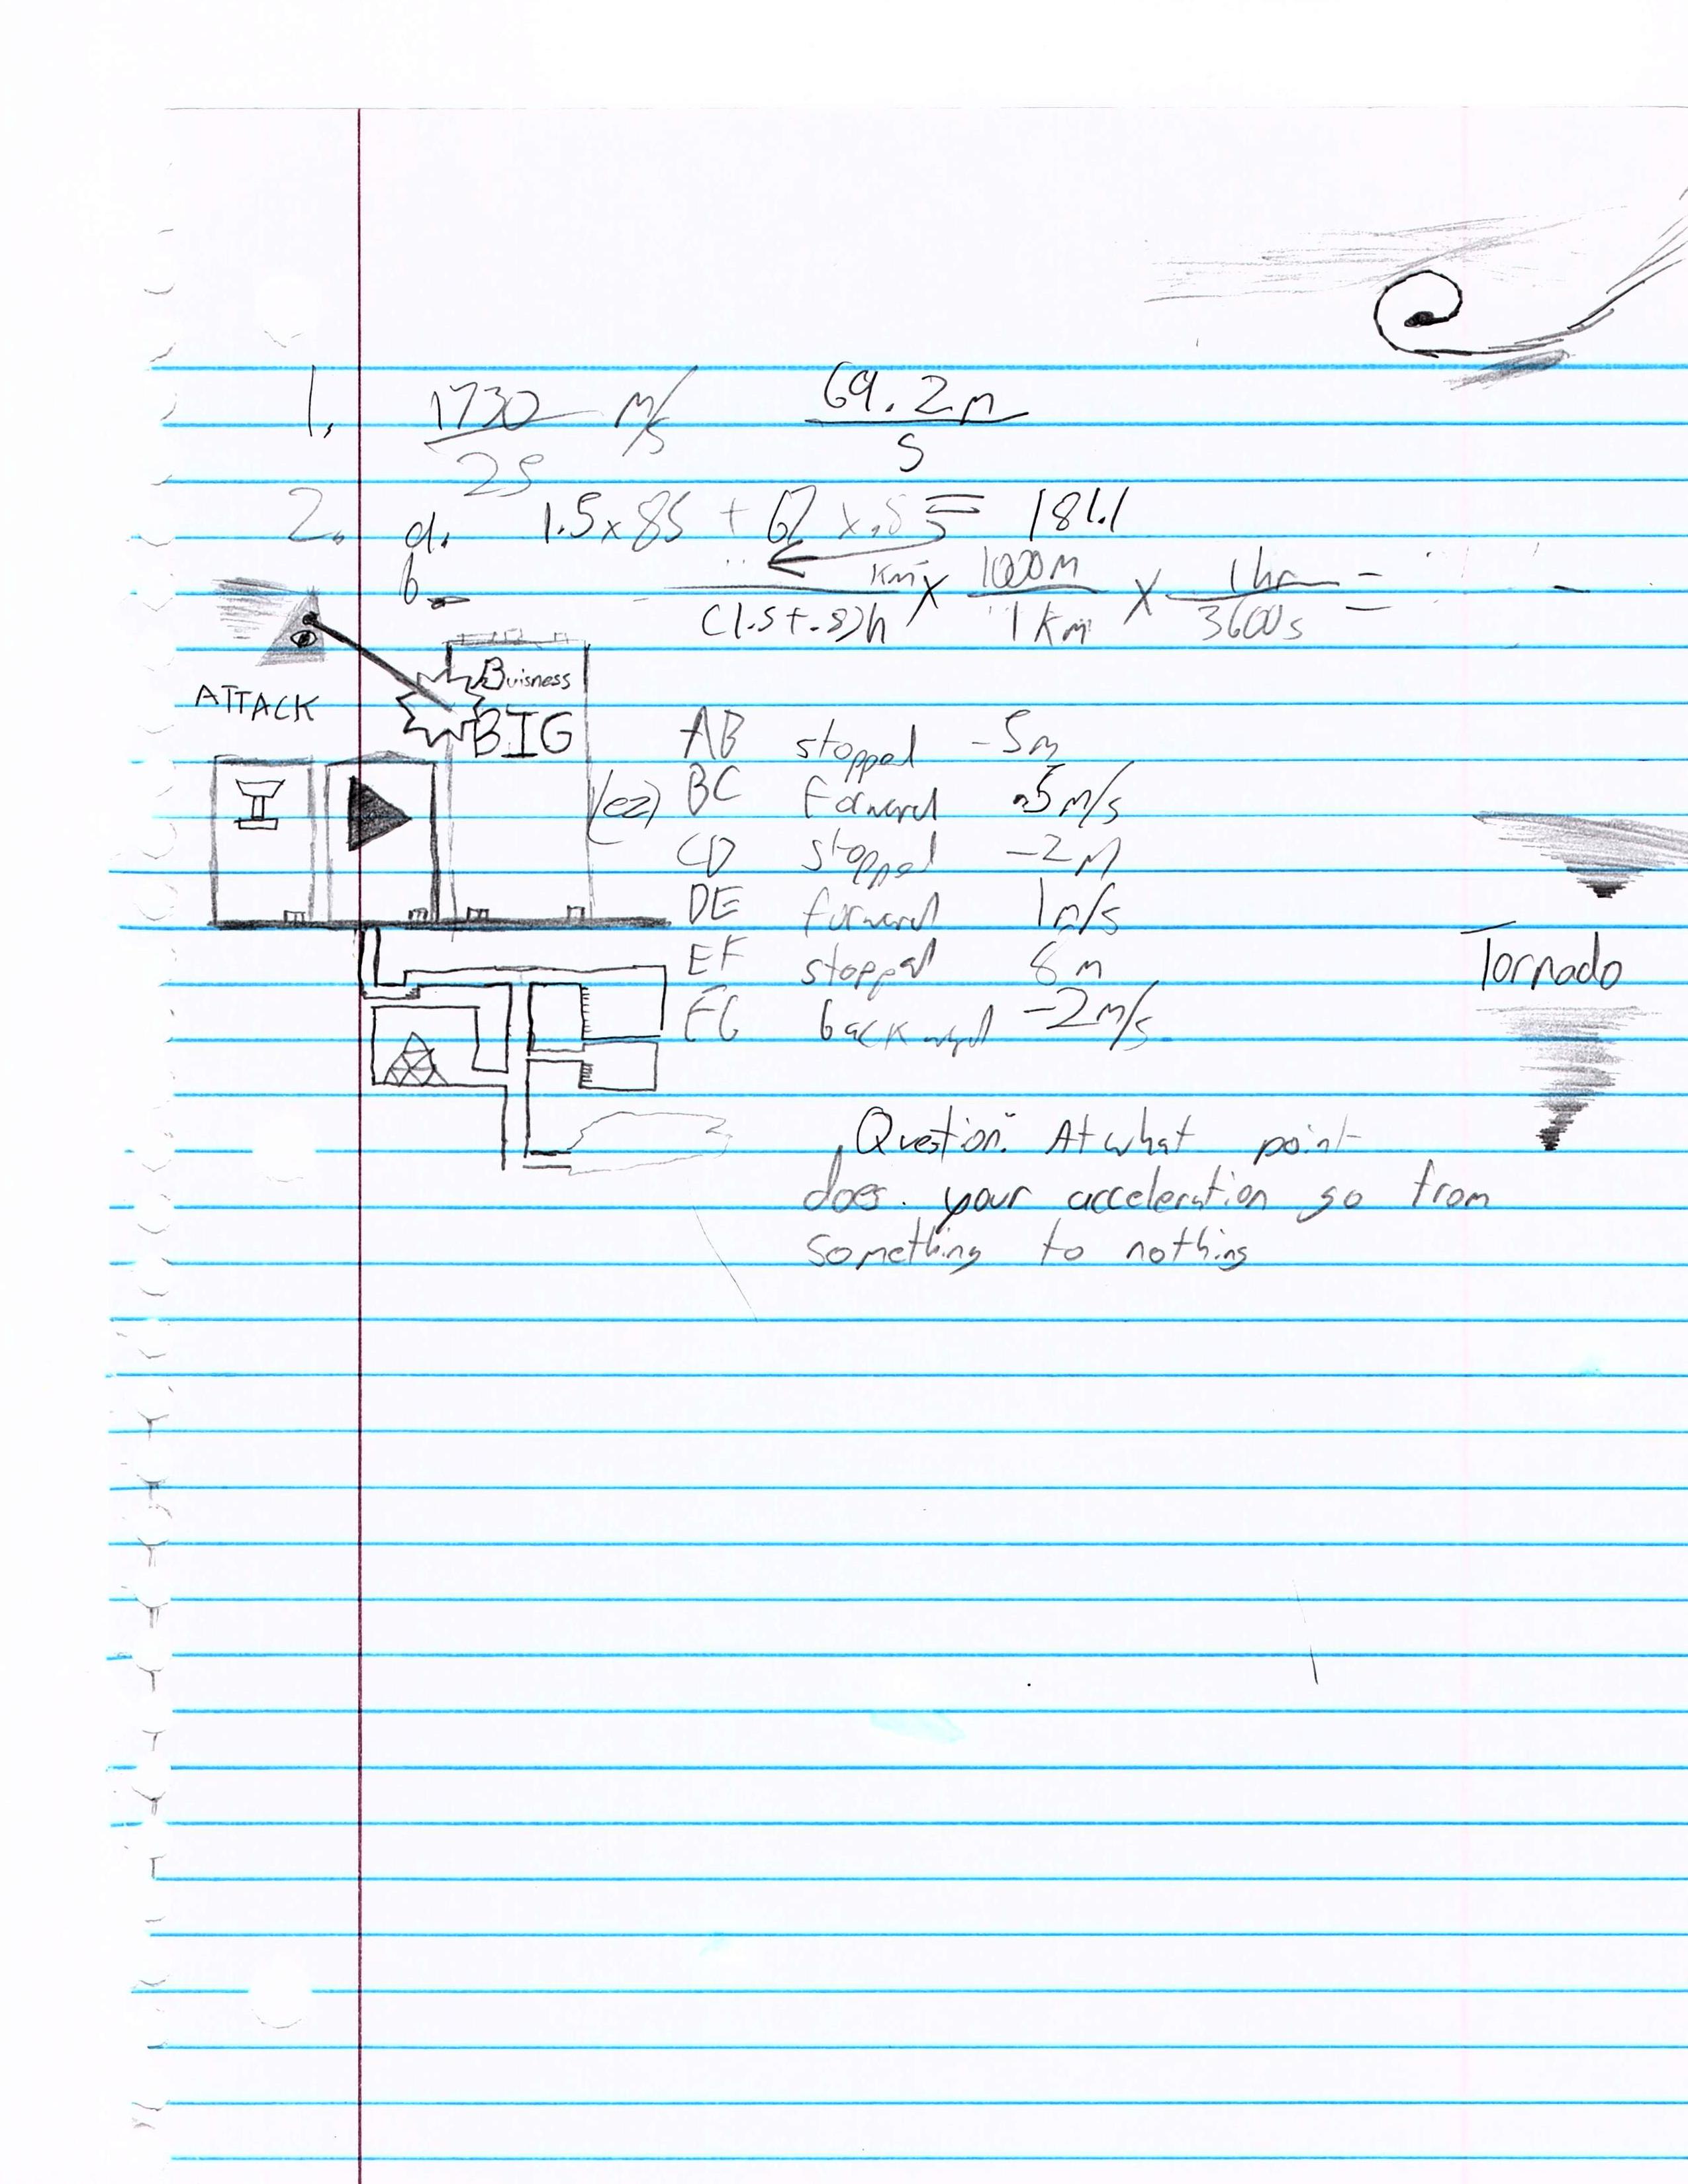 1. 1730/25 m/s 69.2m/s
2. a. 1.5x85 + 67 x.8 = 181.1
b. km/(1.5+.8)h x 1000m/1km x 1hr/3600s =
Buisness
ATTACK
BIG
AB stopped -5m
(ez) BC forward .5m/s
CD stopped -2m
DE forward 1m/s
Tornado
EF stopped 8m
FG backward -2m/s
Question: At what point
does your acceleration go from
something to nothing